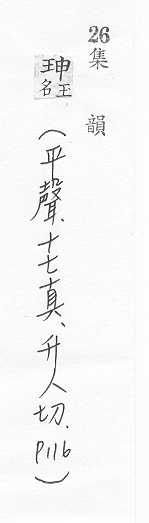 26集 韻
珅 玉名
(平聲、十七真、升人切、P116)